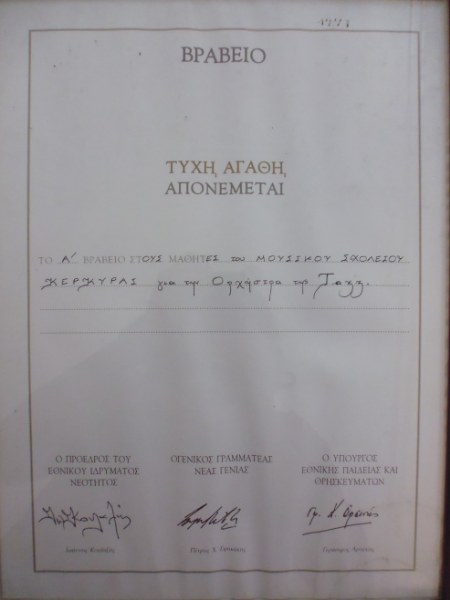 ΒΡΑΒΕΙΟ
ΤΥΧΗ, ΑΓΑΘΗ,
ΑΠΟΝΕΜΕΤΑΙ
ΤΟ Α' ΒΡΑΒΕΙΟ ΣΤΟΥΣ ΜΑΘΗΤΕΣ του ΜΟΥΣΙΚΟΥ ΣΧΟΛΕΙΟΥ
ΚΕΡΚΥΡΑΣ για την Ορχήστρα της
Ο ΠΡΟΕΔΡΟΣ ΤΟΥ
ΕΘΝΙΚΟΥ ΙΔΡΥΜΑΤΟΣ
ΝΕΟΤΗΤΟΣ
Ο ΓΕΝΙΚΟΣ ΓΡΑΜΜΑΤΕΑΣ
ΝΕΑΣ ΓΕΝΙΑΣ
Ο ΥΠΟΥΡΓΟΣ
ΕΘΝΙΚΗΣ ΠΑΙΔΕΙΑΣ ΚΑΙ
ΘΡΗΣΚΕΥΜΑΤΩΝ
Ιωάννης
Πέτρος Σ.
Γεράσιμος Αρσένης